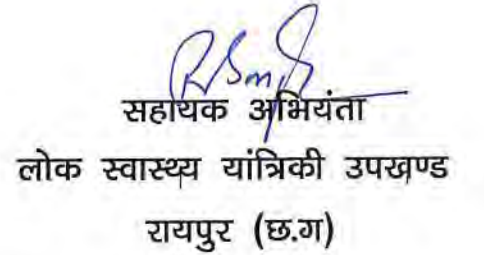 सहायक अभियंता
लोक स्वास्थ्य यांत्रिकी उपखण्ड
रायपुर (छ.ग)